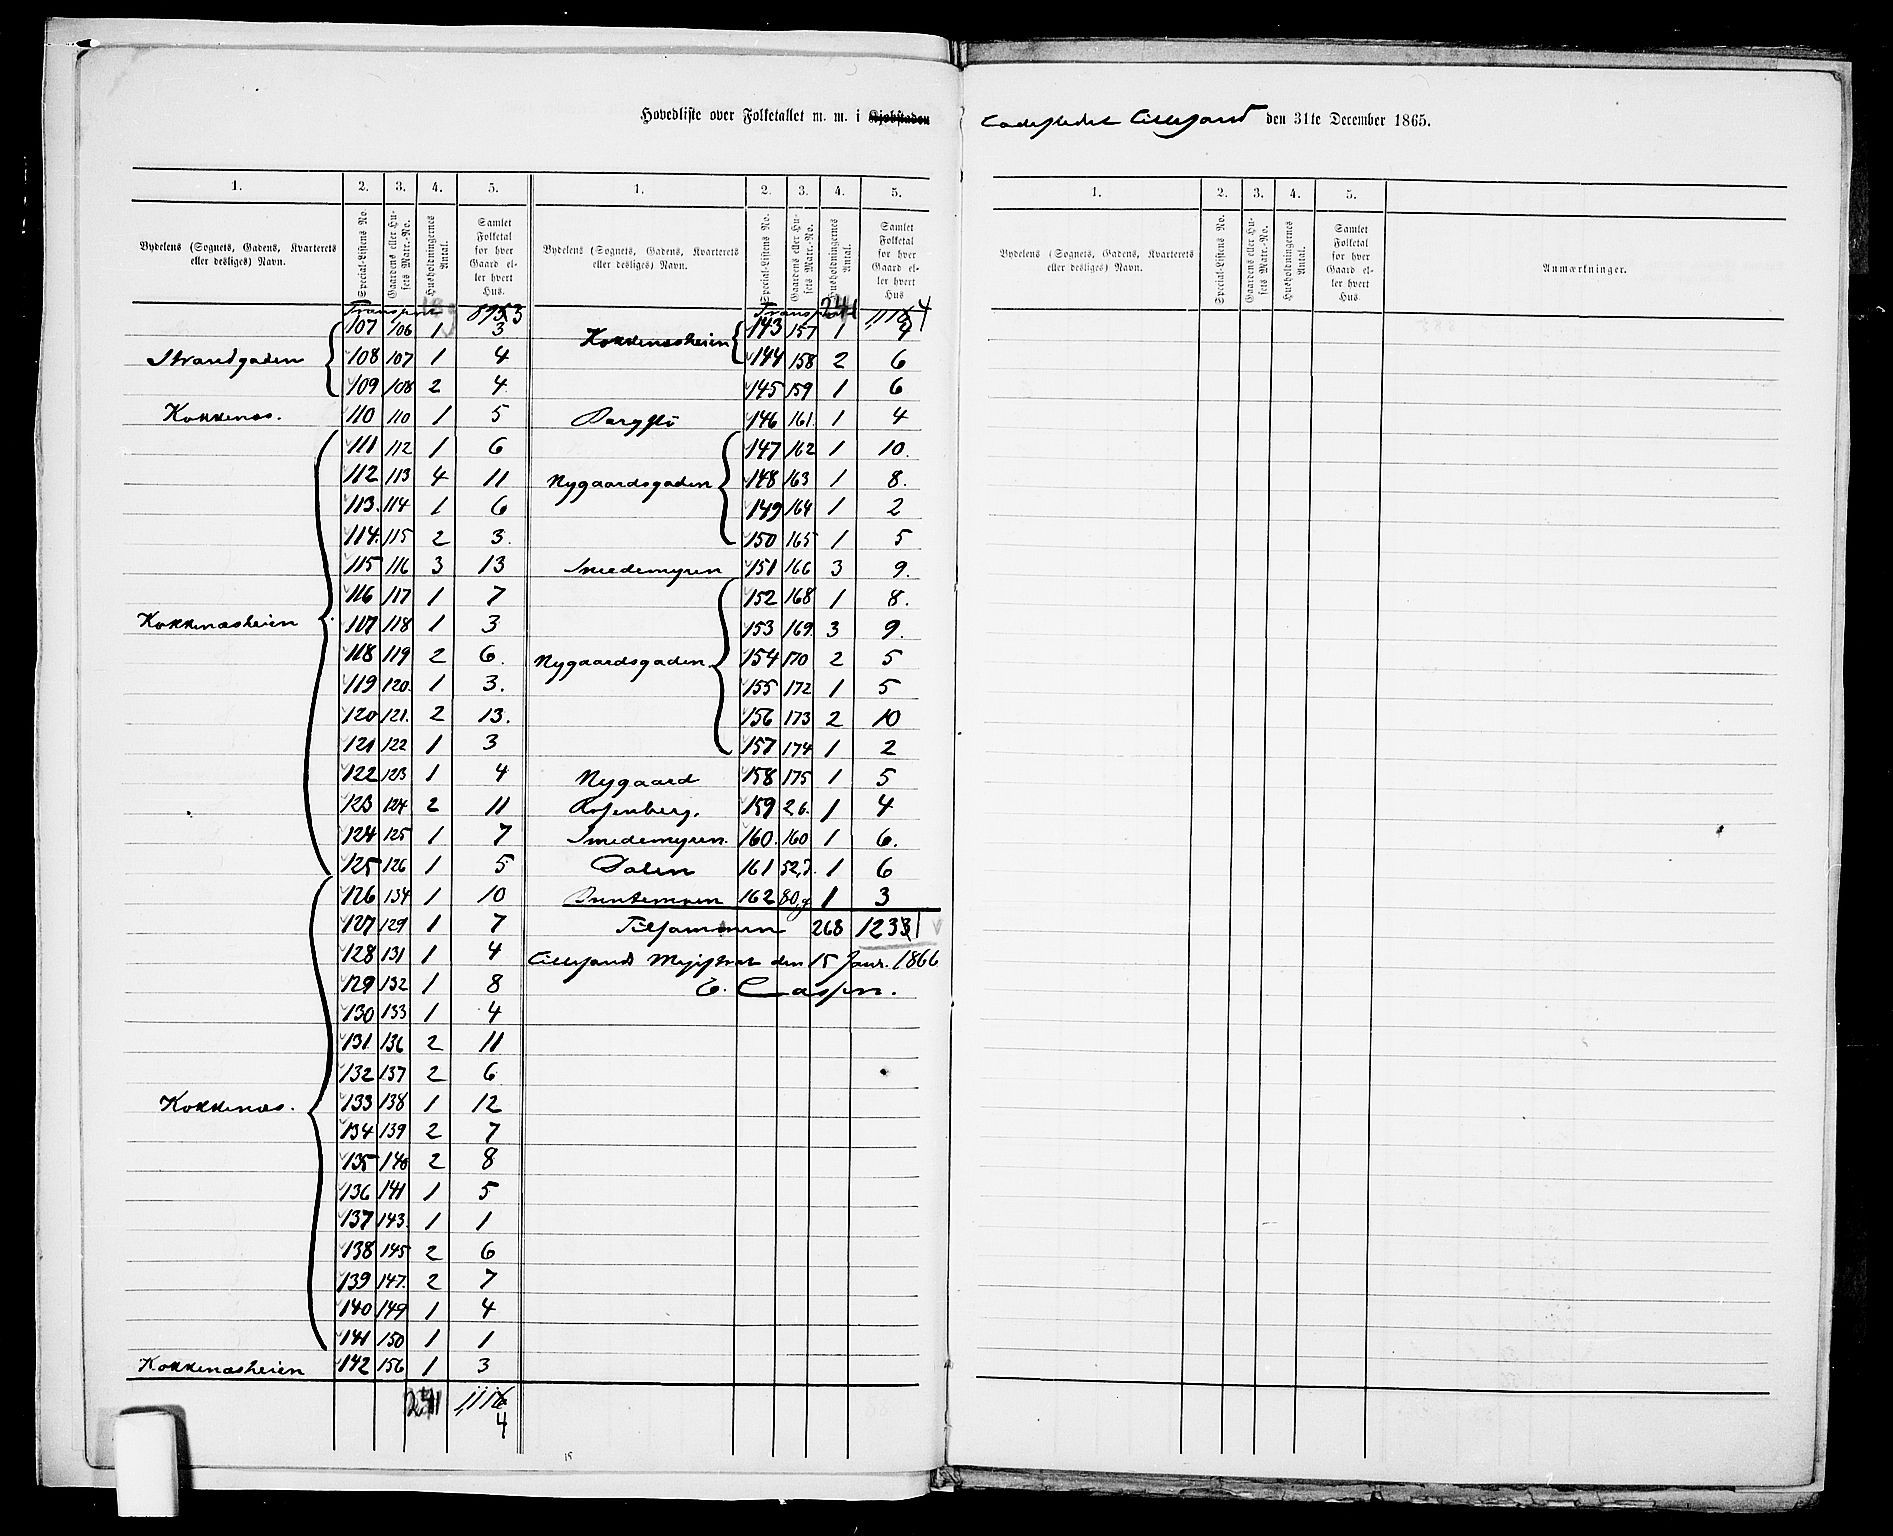 Hovedliste over Folketallet m. m. i Kjøbstaden Ladestedet Lillesand den 31te December 1865.
1. 2. 3. 4. 5. 1. 2. 3. 4. 5.
Bydelens (Sognets, Gadens, Kvarterets eller desliges) Navn. Special-Listens No. Gaardens eller Husets Matr.-No. Husholdningernes Antal. Samlet Folketal for hver Gaard eller hvert Hus.
Bydelens (Sognets, Gadens, Kvarterets eller desliges) Navn. Special-Listens No. Gaardens eller Husets Matr.-No. Husholdningernes Antal. Samlet Folketal for hver Gaard eller hvert Hus
Transport
107 106 1 3
Strandgaden 108 107 1 4
109 108 2 4
Kokkenæs. 110 110 1 5
111 112 1 6
112 113 4 11
113. 114 1 6
114. 115 2 3.
115 116 3 13
116 117 1 7
Kokkenæsheien 117 118 1 3
118 119 2 6.
119 120. 1 3.
120 121. 2 13.
121 122 1 3
122 123 1 4
123 124 2 11
124 125 1 7
125 126 1 5
126 134 1 10
127 129 1 7
128 131 1 4
129 132 1 8
130 133 1 4
131 136 2 11
132 137 2 6
Kokkenæs. 133 138 1 12
134 139 2 7
135 140 2 8
136 141 1 5
137 143. 1 1
138 145 2 6
139 147. 2 7
140 149 1 4
141 150 1 1
Kokkenæsheien 142 156 1 3
241 1,116
4
Transport 241 1,116 4
Kokkenæsheien 143 157 1
144 158 2 6
145 159 1 6
Bergstø 146 161. 1 4
147 162 1 10.
Nygaardsgaden 148 163 1 8.
149 164 1 2
150 165 1 5
Smedemyren 151 166 3 9.
152 168 1 8.
153 169. 3 9.
Nygaardsgaden 154 170 2 5
155 172 1 5
156 173 2 10
157 174 1 2
Nygaard 158 175 1 5
Rosenberg. 159 26. 1 4
Smedemyren. 160. 160 1 6.
Dalen 161 1 6
162 1 3
Tilsammen 268 1233 1
Lillesands Magistrat den 15 Janr. 1866
15
1. 2. 3. 4. 5.
Bydelens (Sognets, Gadens, Kvarterets eller desliges) Navn. Special-Listens No. Gaardens eller Husets Matr.-No. Husholdningernes Antal. Samlet Folketal for hver Gaard eller hvert Hus. Anmærkninger.